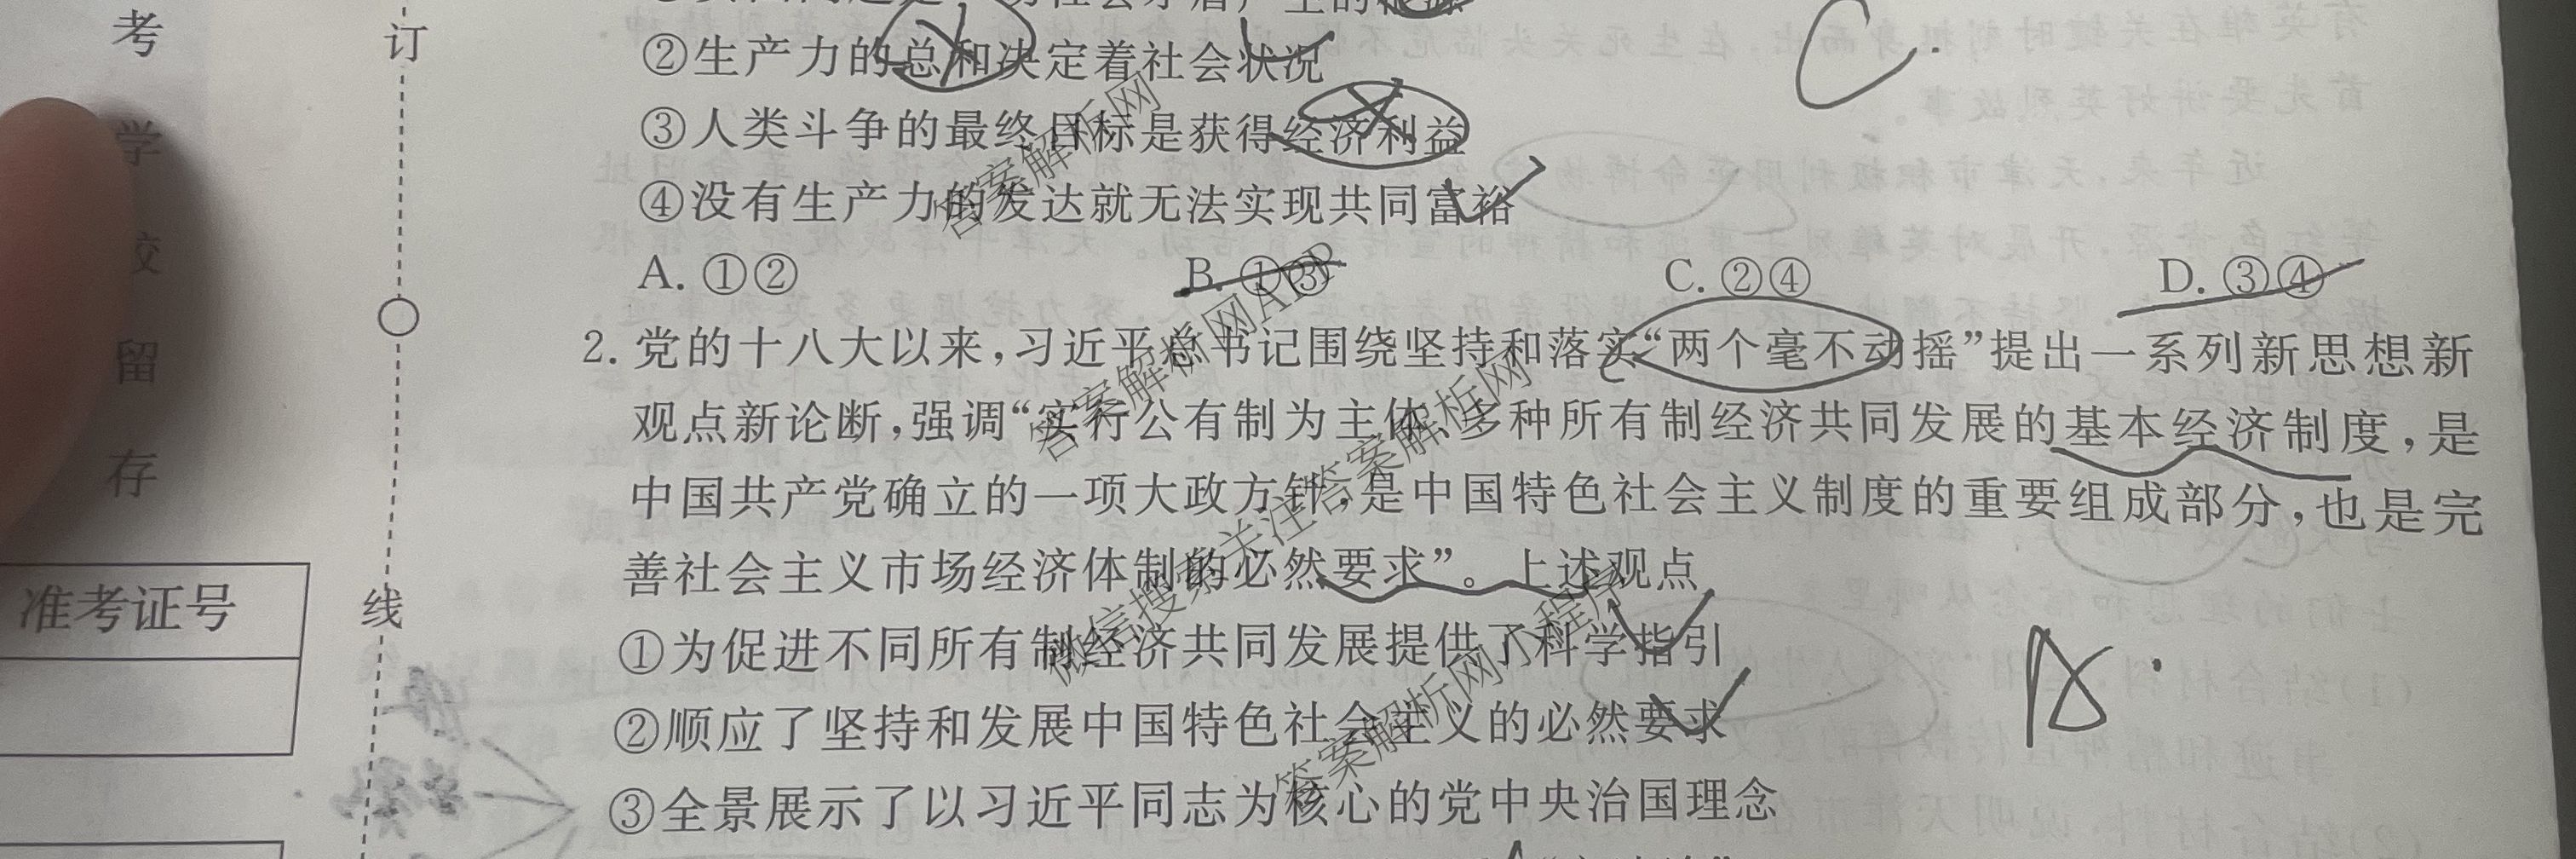 ②生产力的总和决定着社会状况
③人类斗争的最终目标是获得经济利益
④没有生产力的发达就无法实现共同富裕
A. ①② B. ①③ C. ②④ D. ③④
2. 党的十八大以来,习近平总书记围绕坚持和落实“两个毫不动摇”提出一系列新思想新
观点新论断,强调“实行公有制为主体、多种所有制经济共同发展的基本经济制度,是
中国共产党确立的一项大政方针,是中国特色社会主义制度的重要组成部分,也是完
善社会主义市场经济体制的必然要求”。上述观点
①为促进不同所有制经济共同发展提供了科学指引
②顺应了坚持和发展中国特色社会主义的必然要求
③全景展示了以习近平同志为核心的党中央治国理念
C.
考
学
校
留
存
准考证号
订
线
答案解析网
答案解析网APP
微信搜索关注答案解析网
答案解析网小程序